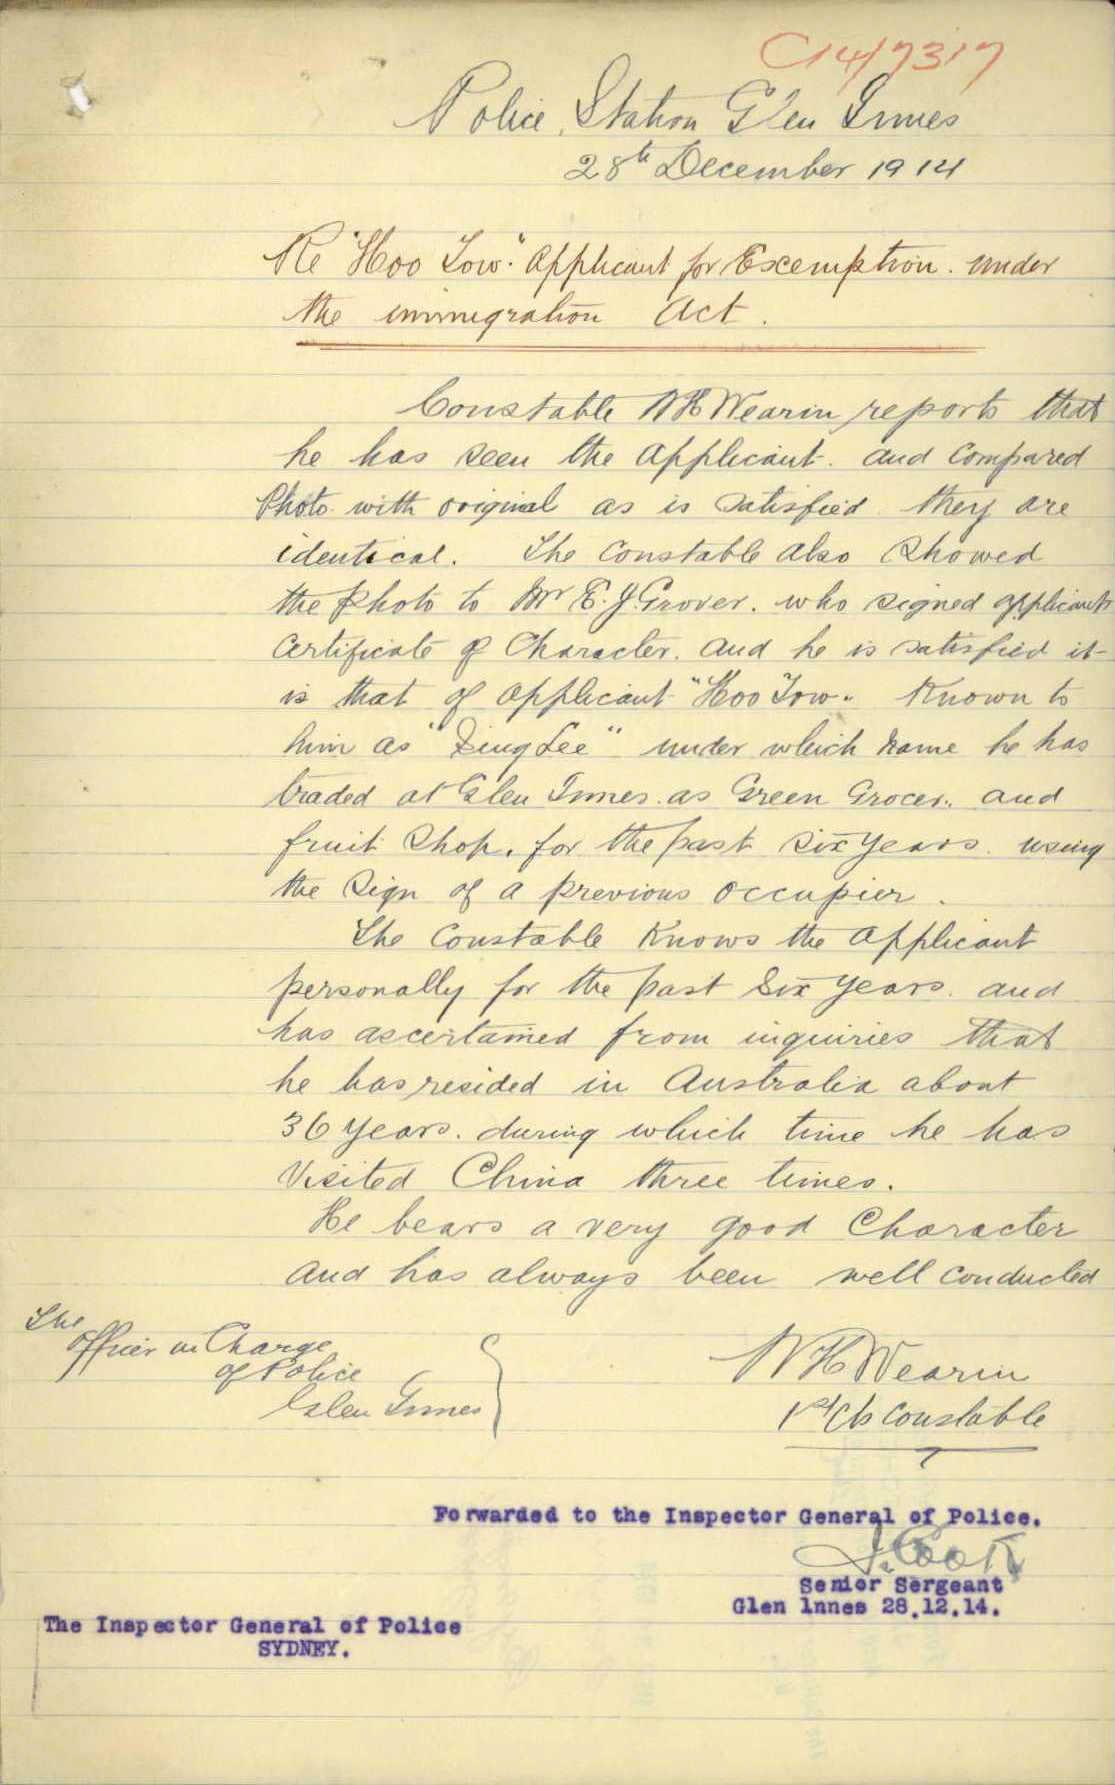 C14/7317
Police Station Glen Innes
28th December 1914
Re "Hoo Tow" Applicant for Excemption. under
the immigration Act.
Constable W H Wearin reports that
he has seen the Applicant. and Compared
Photo with original as is satisfied they are
identical. The Constable also showed
the photo to Mr E. J. Grover. who signed applicants
Certificate of Character. and he is satisfied it
is that of applicant "Hoo Tow". Known to
him as "Sing Lee" under which name he has
traded at Glen Innes. as Green Grocer. and
fruit Shop. for the past six years. using
the sign of a previous occupier.
The Constable Knows the applicant
personally for the past six years. and
has ascertained from inquiries that
he has resided in Australia about
36 years. during which time he has
Visited China three times.
He bears a very good Character
and has always been well conducted
The
Officer in Charge
of Police
Glen Innes
W H Wearin
1st Cls Constable
Forwarded to the Inspector General of Police.
J. Cook
Senior Sergeant
Glen lnnes 28.12.14.
The Inspector General of Police
SYDNEY.